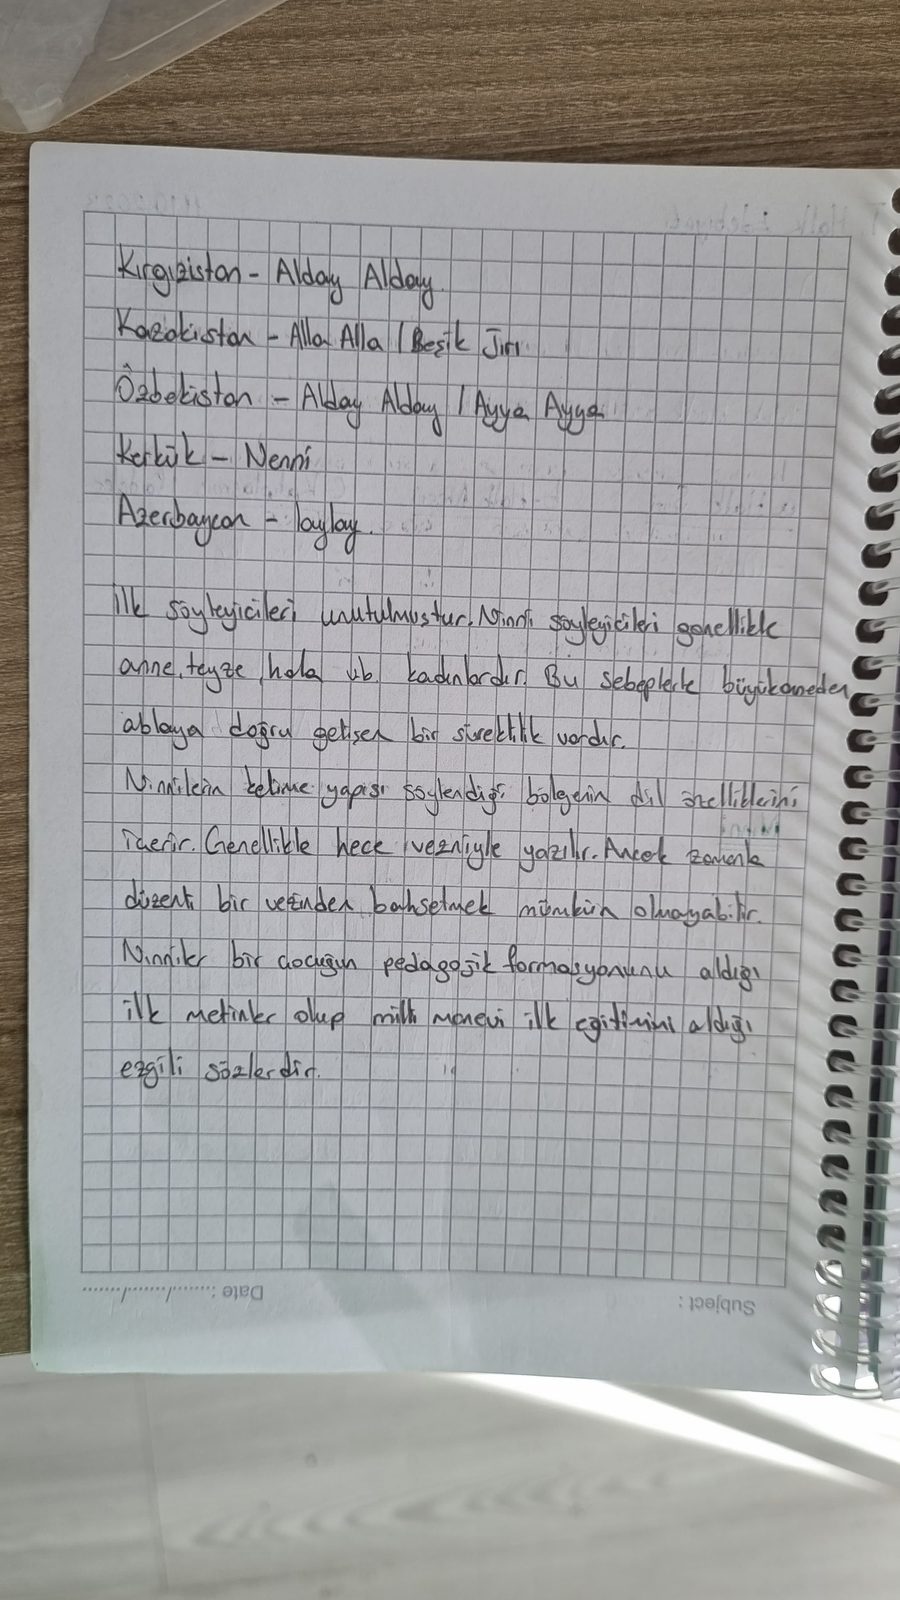 Kırgızistan - Alday Alday
Kazakistan - Alla Alla / Beşik Jırı
Özbekistan - Alday Alday / Ayya Ayya
Kerkük - Nenni
Azerbaycan - laylay.
İlk söyleyicileri unutulmuştur. Ninni söyleyicileri genellikle
anne, teyze, hala vb. kadınlardır. Bu sebeplerle büyükanneden
ablaya doğru gelişen bir süreklilik vardır.
Ninnilerin kelime yapısı söylendiği bölgenin dil özelliklerini
içerir. Genellikle hece vezniyle yazılır. Ancak zamanla
düzenli bir vezinden bahsetmek mümkün olmayabilir.
Ninniler bir çocuğun pedagojik formasyonunu aldığı
ilk metinler olup milli manevi ilk eğitimini aldığı
ezgili sözlerdir.
Subject :
Date : ......./......./.......